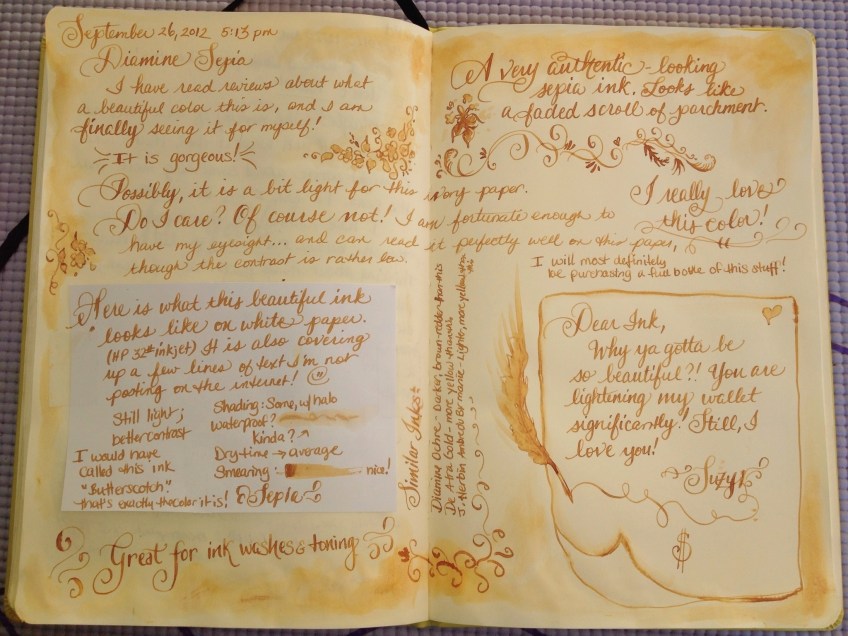 September 26, 2012 5:13 pm
Diamine Sepia
I have read reviews about what
a beautiful color this is, and I am
finally seeing it for myself!
It is gorgeous!
Possibly, it is a bit light for this ivory paper.
Do I care? Of course not! I am fortunate enough to
have my eyesight... and can read it perfectly well on this paper,
though the contrast is rather low.
Here is what this beautiful ink
looks like on white paper.
(HP 32# inkjet) It is also covering
up a few lines of text I'm not
posting on the internet!
Still light;
better contrast
I would have
called this ink
"Butterscotch"
that's exactly the color it is!
Shading: Some, w/ halo
waterproof?
kinda?
Dry time → average
Smearing: nice!
Sepia
Great for ink washes & toning
Similar Inks:
Diamine Ochre - Darker, brown-redder than this
De Atra Gold - more yellow than this,
J. Herbin Ambre de Birmanie - Lighter, more yellow than this
A very authentic-looking
sepia ink. Looks like
a faded scroll of parchment.
I really love
this color!
I will most definitely
be purchasing a full bottle of this stuff!
Dear Ink,
Why ya gotta be
so beautiful?! You are
lightening my wallet
significantly! Still, I
love you!
Suzy
$